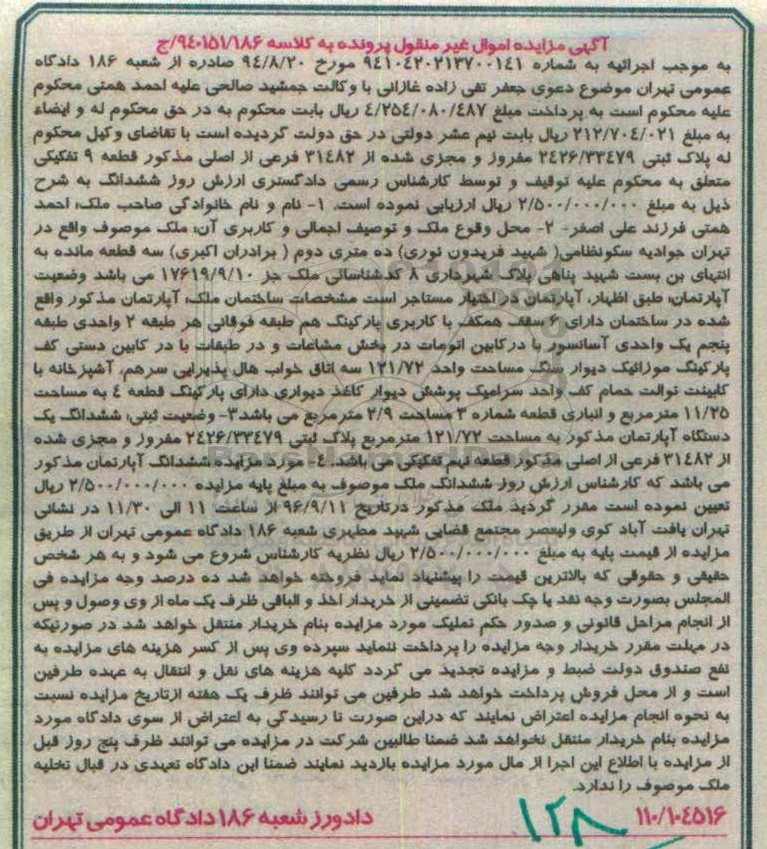 آگهی مزایده اموال غیر منقول پرونده به کلاسه ۹۴۰۱۵۱/۱۸۶/ج
به موجب اجرائیه به شماره ۹۴۱۰۴۲۰۲۱۳۷۰۰۱۴۱ مورخ ۹۴/۸/۲۰ صادره از شعبه ۱۸۶ دادگاه
عمومی تهران موضوع دعوی جعفر تقی زاده غازانی با وکالت جمشید صالحی علیه احمد همتی محکوم
علیه محکوم است به پرداخت مبلغ ۴/۲۵۴/۰۸۰/۴۸۷ ریال بابت محکوم به در حق محکوم له و ایضاء
به مبلغ ۲۱۲/۷۰۴/۰۲۱ ریال بابت نیم عشر دولتی در حق دولت گردیده است با تقاضای وکیل محکوم
له پلاک ثبتی ۲۴۲۶/۳۳۴۷۹ مفروز و مجزی شده از ۳۱۴۸۲ فرعی از اصلی مذکور قطعه ۹ تفکیکی
متعلق به محکوم علیه توقیف و توسط کارشناس رسمی دادگستری ارزش روز ششدانگ به شرح
ذیل به مبلغ ۲/۵۰۰/۰۰۰/۰۰۰ ریال ارزیابی نموده است. ۱- نام و نام خانوادگی صاحب ملک: احمد
همتی فرزند علی اصغر- ۲- محل وقوع ملک و توصیف اجمالی و کاربری آن: ملک موصوف واقع در
تهران جوادیه سکونظامی( شهید فریدون نوری) ده متری دوم ( برادران اکبری) سه قطعه مانده به
انتهای بن بست شهید پناهی پلاک شهرداری ۸ کدشناسائی ملک جز ۱۷۶۱۹/۹/۱۰ می باشد وضعیت
آپارتمان: طبق اظهار، آپارتمان در اختیار مستاجر است مشخصات ساختمان ملک: آپارتمان مذکور واقع
شده در ساختمان دارای ۶ سقف همکف با کاربری پارکینگ هم طبقه فوقانی هر طبقه ۲ واحدی طبقه
پنجم یک واحدی آسانسور با درکابین اتومات در بخش مشاعات و در طبقات با در کابین دستی کف
پارکینگ موزائیک دیوار سنگ مساحت واحد ۱۲۱/۷۲ سه اتاق خواب هال پذیرایی سرهم، آشپزخانه با
کابینت توالت حمام کف واحد سرامیک پوشش دیوار کاغذ دیواری دارای پارکینگ قطعه ۴ به مساحت
۱۱/۲۵ مترمربع و انباری قطعه شماره ۳ مساحت ۲/۹ مترمربع می باشد ۳- وضعیت ثبتی: ششدانگ یک
دستگاه آپارتمان مذکور به مساحت ۱۲۱/۷۲ مترمربع پلاک ثبتی ۲۴۲۶/۳۳۴۷۹ مفروز و مجزی شده
از ۳۱۴۸۲ فرعی از اصلی مذکور قطعه نهم تفکیکی می باشد. ۴- مورد مزایده ششدانگ آپارتمان مذکور
می باشد که کارشناس ارزش روز ششدانگ ملک موصوف به مبلغ پایه مزایده ۲/۵۰۰/۰۰۰/۰۰۰ ریال
تعیین نموده است مقرر گردید ملک مذکور درتاریخ ۹۶/۹/۱۱ از ساعت ۱۱ الی ۱۱/۳۰ در نشانی
تهران یافت آباد کوی ولیعصر مجتمع قضایی شهید مطهری شعبه ۱۸۶ دادگاه عمومی تهران از طریق
مزایده از قیمت پایه به مبلغ ۲/۵۰۰/۰۰۰/۰۰۰ ریال نظریه کارشناس شروع می شود و به هر شخص
حقیقی و حقوقی که بالاترین قیمت را پیشنهاد نماید فروخته خواهد شد ده درصد وجه مزایده فی
المجلس بصورت وجه نقد یا چک بانکی تضمینی از خریدار اخذ و الباقی ظرف یک ماه از وی وصول و پس
از انجام مراحل قانونی و صدور حکم تملیک مورد مزایده بنام خریدار منتقل خواهد شد در صورتیکه
در مهلت مقرر خریدار وجه مزایده را پرداخت ننماید سپرده وی پس از کسر هزینه های مزایده به
نفع صندوق دولت ضبط و مزایده تجدید می گردد کلیه هزینه های نقل و انتقال به عهده طرفین
است و از محل فروش پرداخت خواهد شد طرفین می توانند ظرف یک هفته ازتاریخ مزایده نسبت
به نحوه انجام مزایده اعتراض نمایند که دراین صورت تا رسیدگی به اعتراض از سوی دادگاه مورد
مزایده بنام خریدار منتقل نخواهد شد ضمنا طالبین شرکت در مزایده می توانند ظرف پنج روز قبل
از مزایده با اطلاع این اجرا از مال مورد مزایده بازدید نمایند ضمنا این دادگاه تعهدی در قبال تخلیه
ملک موصوف را ندارد.
۱۱۰/۱۰۴۵۱۶ دادورز شعبه ۱۸۶ دادگاه عمومی تهران
۱۲۸